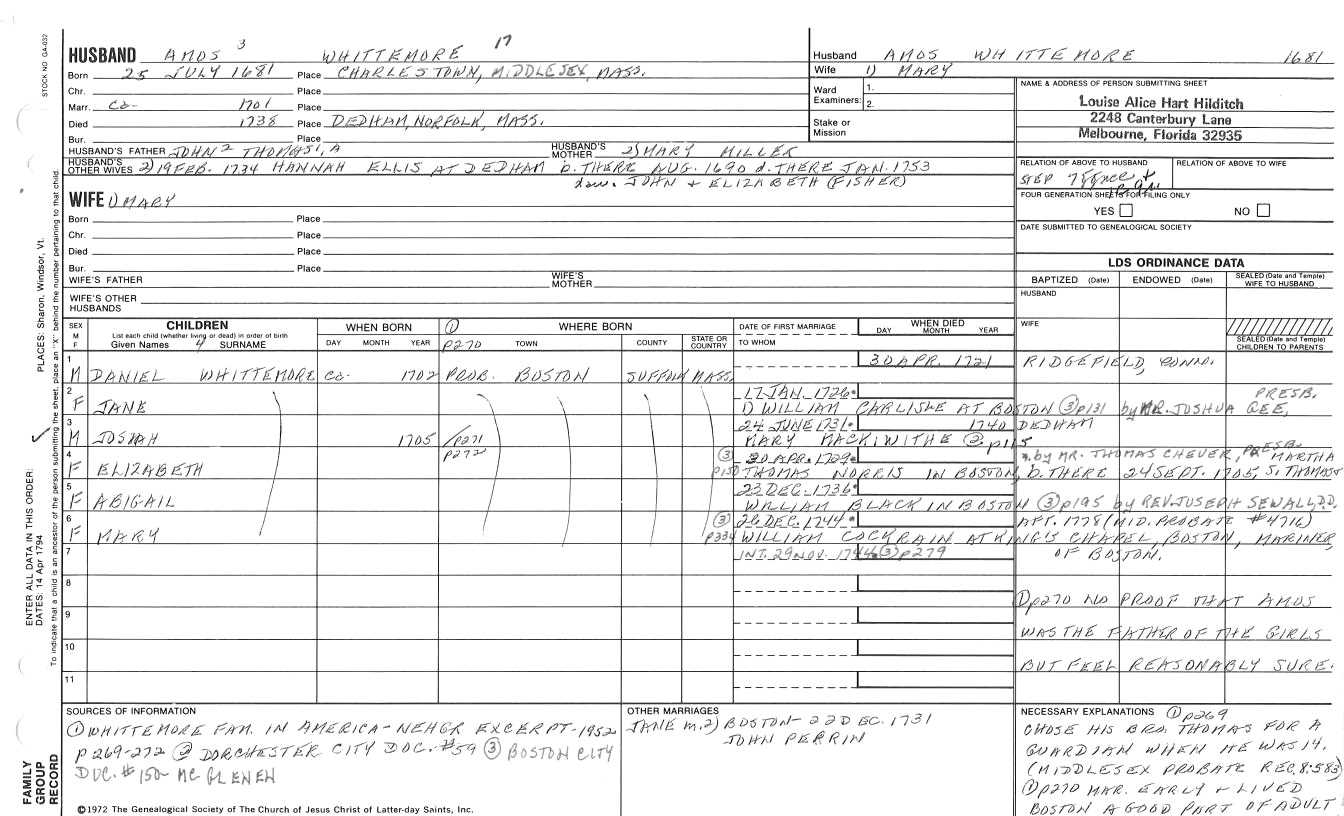 STOCK NO GA-032
HUSBAND AMOS 3 WHITTEMORE 17
Born 25 JULY 1681 Place CHARLESTOWN, MIDDLESEX, MASS.
Chr. Place
Marr. ca- 1701 Place
Died 1738 Place DEDHAM, NORFOLK, MASS.
Bur. Place
HUSBAND'S FATHER JOHN 2 THOMAS 1, A HUSBAND'S MOTHER 2) MARY MILLER
HUSBAND'S OTHER WIVES 2) 19 FEB. 1734 HANNAH ELLIS AT DEDHAM b. THERE AUG. 1690 d. THERE JAN. 1753
dau. JOHN + ELIZABETH (FISHER)
WIFE 1) MARY
Born Place
Chr. Place
Died Place
Bur. Place
WIFE'S FATHER WIFE'S MOTHER
WIFE'S OTHER HUSBANDS
Husband AMOS WHITTEMORE 1681
Wife 1) MARY
Ward Examiners: 1.
2.
Stake or Mission
NAME & ADDRESS OF PERSON SUBMITTING SHEET
Louise Alice Hart Hilditch
2248 Canterbury Lane
Melbourne, Florida 32935
RELATION OF ABOVE TO HUSBAND RELATION OF ABOVE TO WIFE
STEP
FOUR GENERATION SHEETS FOR FILING ONLY
YES NO
DATE SUBMITTED TO GENEALOGICAL SOCIETY
LDS ORDINANCE DATA
BAPTIZED (Date) ENDOWED (Date) SEALED (Date and Temple) WIFE TO HUSBAND
HUSBAND
WIFE
SEALED (Date and Temple) CHILDREN TO PARENTS
SEX M F CHILDREN List each child (whether living or dead) in order of birth Given Names 4 SURNAME WHEN BORN DAY MONTH YEAR ① p270 WHERE BORN TOWN COUNTY STATE OR COUNTRY DATE OF FIRST MARRIAGE TO WHOM WHEN DIED DAY MONTH YEAR
1 M DANIEL WHITTEMORE ca- 1702 PROB. BOSTON SUFFOLK MASS. 30 APR. 1721 RIDGEFIELD, CONN.
2 F JANE 17 JAN. 1726 PRESB.
1) WILLIAM CARLISLE AT BOSTON ③ p131 by MR. JOSHUA GEE,
3 M JOSIAH 1705 p271 p272 24 JUNE 1731 1740 DEDHAM
MARY MACKIWITHE ② p115
4 F ELIZABETH ③ p150 30 APR. 1729 by MR. THOMAS CHEVER, PRESB. MARTHA
THOMAS NORRIS IN BOSTON, b. THERE 24 SEPT. 1705, S. THOMAS
5 F ABIGAIL 23 DEC. 1736
WILLIAM BLACK IN BOSTON ③ p195 by REV. JOSEPH SEWALL, D.D.
6 F MARY ③ p334 26 DEC. 1744 AFT. 1778 (MID. PROBATE #4716)
WILLIAM COCKRAIN AT KING'S CHAPEL, BOSTON, MARINER,
7 INT. 29 NOV. 1744 ③ p279 OF BOSTON.
8
9
10
11
① p270 NO PROOF THAT AMOS
WAS THE FATHER OF THE GIRLS
BUT FEEL REASONABLY SURE.
SOURCES OF INFORMATION
① WHITTEMORE FAM. IN AMERICA - NEHGR EXCERPT - 1952
p 269-272 ② DORCHESTER CITY DOC. #59 ③ BOSTON CITY
DOC. #150 - MC GLENEN
OTHER MARRIAGES
JANE m. 2) BOSTON - 22 DEC. 1731
JOHN PERRIN
NECESSARY EXPLANATIONS ① p269
CHOSE HIS BRO. THOMAS FOR A
GUARDIAN WHEN HE WAS 14.
(MIDDLESEX PROBATE REC. 8:583)
① p270 MAR. EARLY + LIVED
BOSTON A GOOD PART OF ADULT
©1972 The Genealogical Society of The Church of Jesus Christ of Latter-day Saints, Inc.
FAMILY GROUP RECORD
ENTER ALL DATA IN THIS ORDER:
DATES: 14 Apr 1794 PLACES: Sharon, Windsor, Vt.
To indicate that a child is an ancestor of the person submitting the sheet, place an "X" behind the number pertaining to that child.